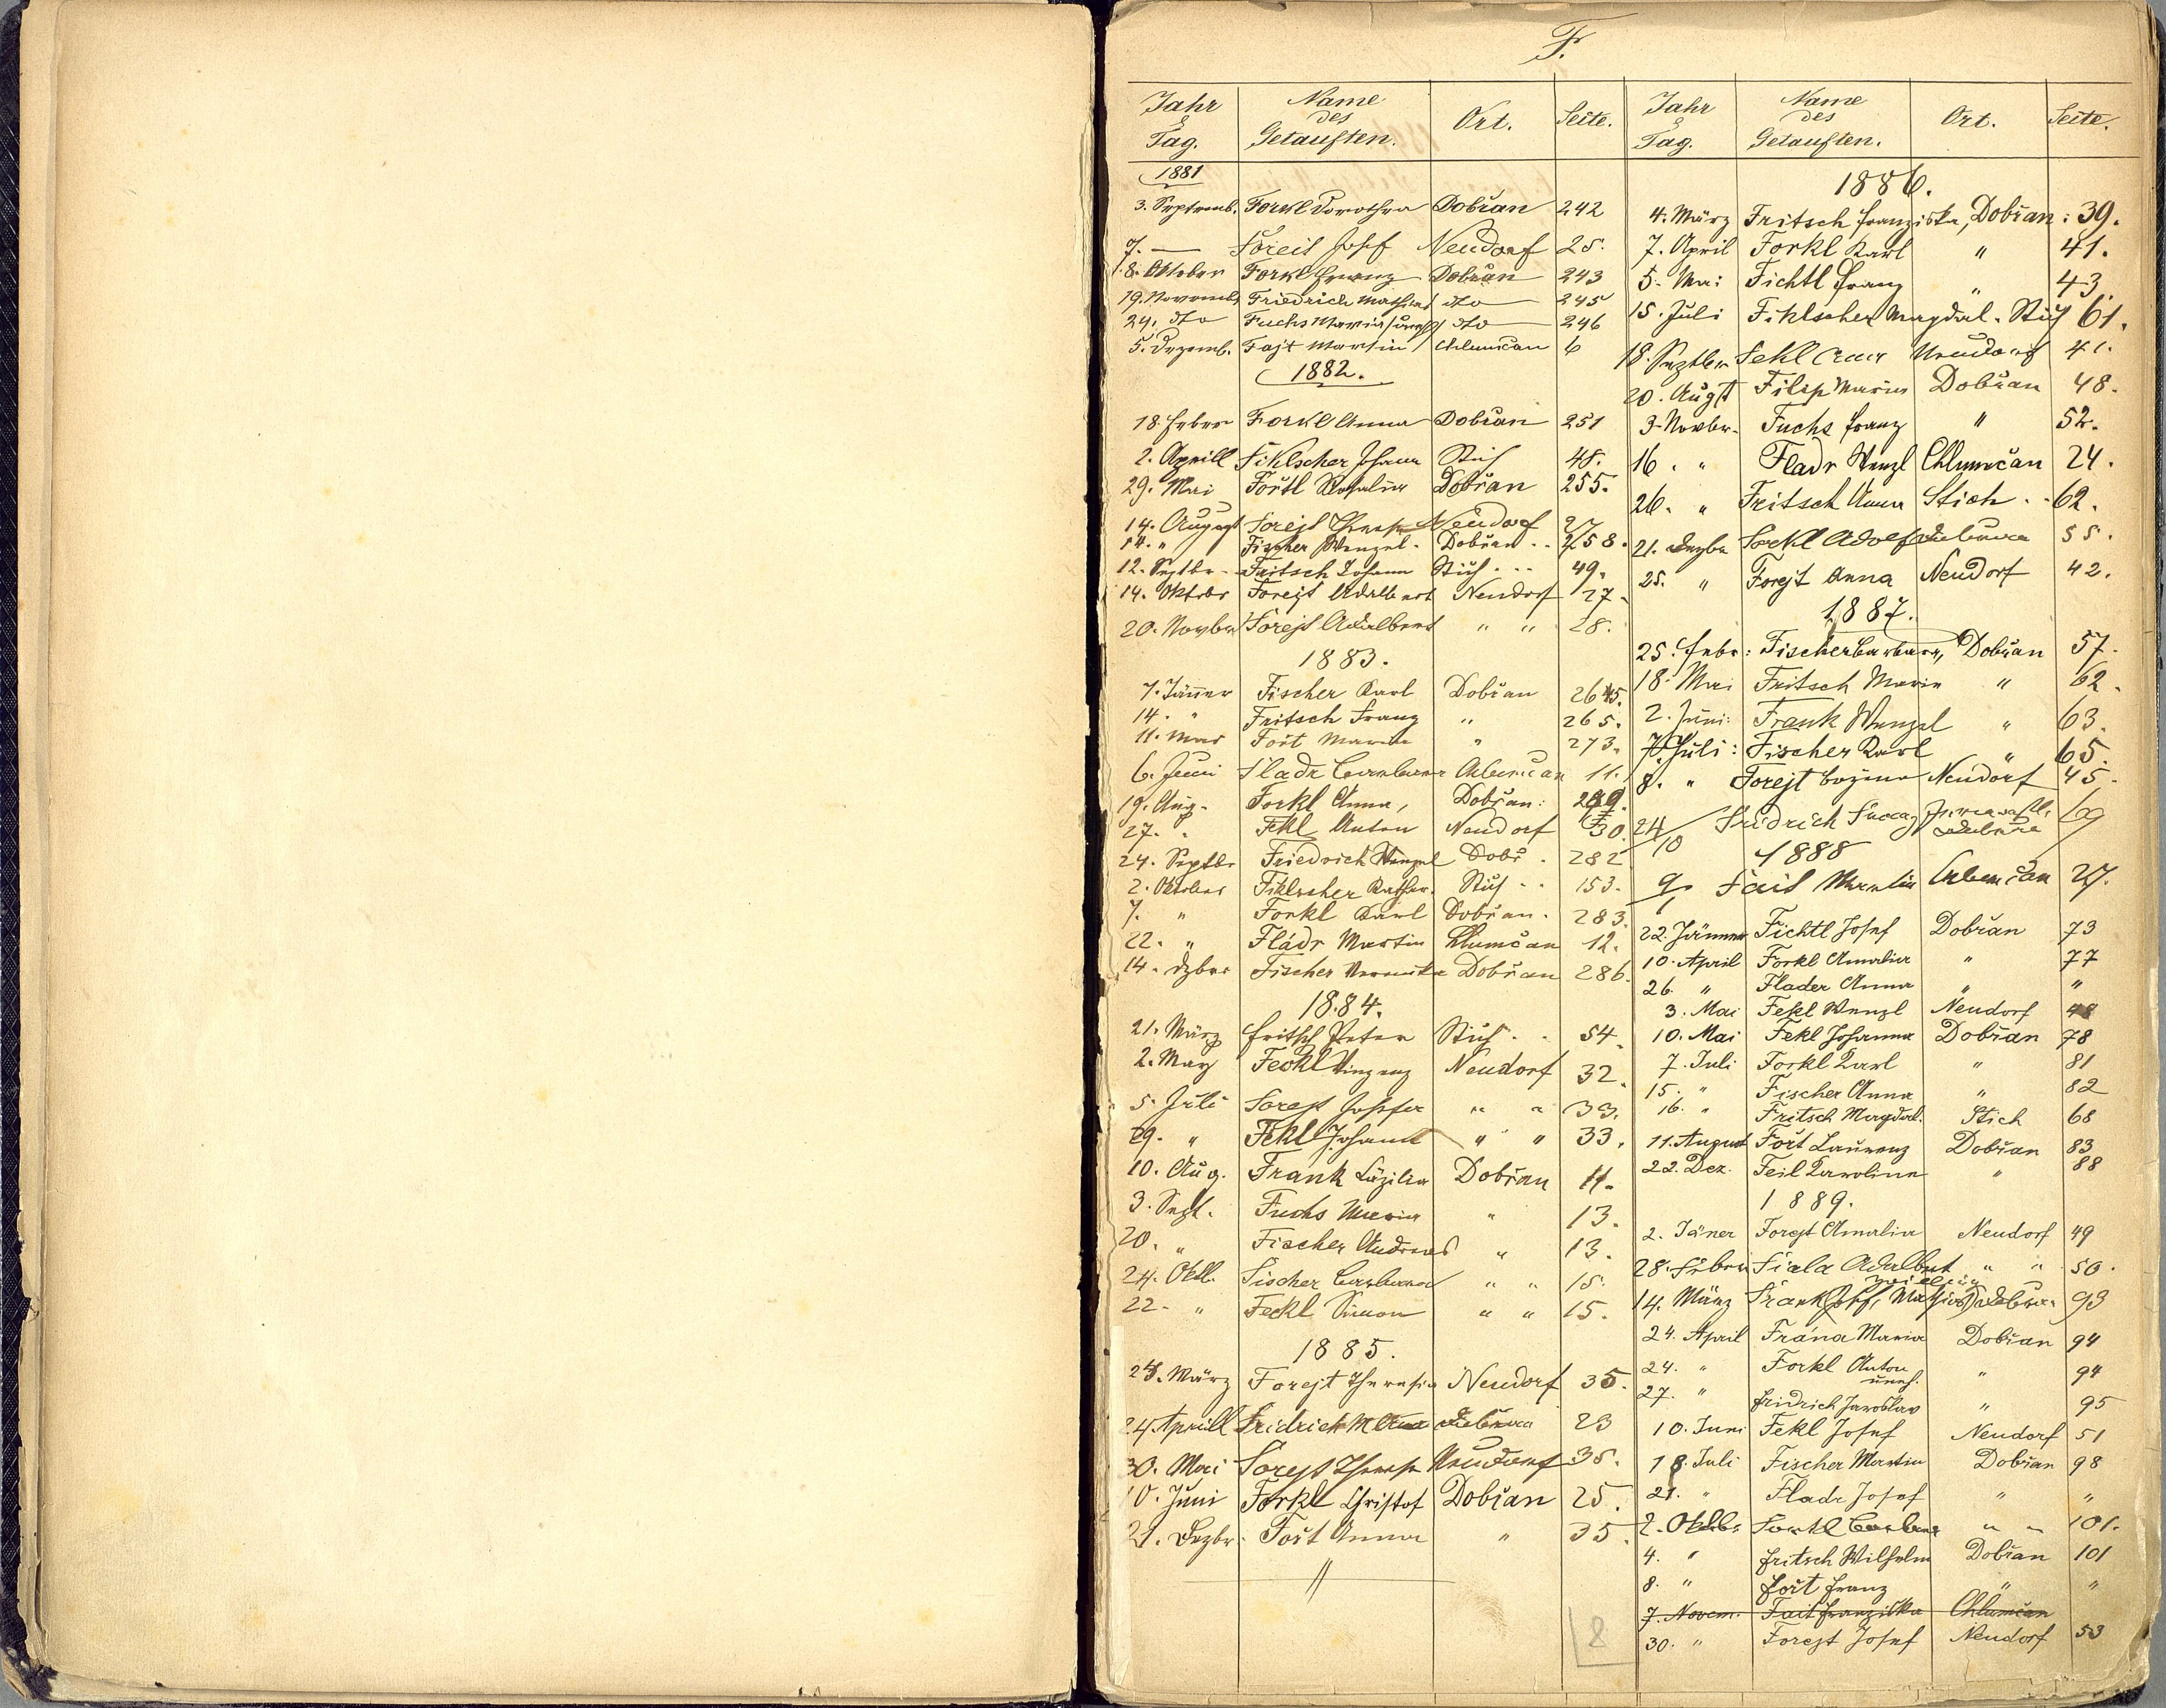 F.
Jahr & Tag. Name des Getauften. Ort. Seite.
1881
3. Septemb. Forkl Dorothea Dobřan 242
7. — Foreit Josef Neudorf 25.
8. Oktober Forkl Franz Dobřan 243
19. Novemb. Friedrich Mathias dto 245
24. dto Fuchs Maria dto 246
5. Dezemb. Fajt Martin Chlumčan 6
1882.
18. Feber Forkl Anna Dobřan 251
2. Aprill Fiklscher Johann Stich 48.
29. Mai Fořtl Rosalia Dobřan 255.
14. August Forejt Theresia Neudorf 27
14. " Fischer Wenzel. Dobřan .. 258.
12. Septbr. Fritsch Johann Stich ... 49.
14. Oktobr Forejt Adalbert Neudorf 27.
20. Novber Forejt Adalbert " " 28.
1883.
7. Jänner Fischer Karl Dobřan 265.
14. " Fritsch Franz " 265.
11. Mai Fořt Maria " 273.
6. Juni Fladr Barbara Chlumčan 11.
19. Aug. Forkl Anna, Dobřan:
27. " Fekl Anton Neudorf 30.
24. Septbr Friedrich Wenzel Dobř. 282
2. Oktober Fiklscher Kathar. Stich .. 153.
7. " Forkl Karl Dobřan. 283.
22. " Fládr Martin Chlumčan 12.
14. Dzber Fischer Veronika Dobřan 286.
1884.
21. März Fritsch Peter Stich . . 54.
2. May Feckl Vinzenz Neudorf 32.
5. Juli Forejt Josefa " " 33.
29. " Fekl Johann " " 33.
10. Aug. Frank Cäzilia Dobřan 11.
3. Sept. Fuchs Maria " 13.
20. " Fischer Andreas " 13.
24. Okt. Fischer Barbara " " 15.
22. " Feckl Simon " " 15.
1885.
28. März Forejt Theresia Neudorf 35.
24 Aprill Fridrich M. Anna Dobřan 23
30. Mai Forejt Theresia Neudorf 35.
10. Juni Forkl Christof Dobřan 25.
21. Dezbr. Fořt Anna " 35.
8
Jahr & Tag. Name des Getauften. Ort. Seite.
1886.
4. März Fritsch Franziska, Dobřan: 39.
7. April Forkl Karl " 41.
5. Mai Fichtl Franz " 43
15. Juli Fiklscher Magdal. Stich 61.
18. Septber Fekl Neudorf 41.
20. August Filsp Maria Dobřan 48.
3. Novbr. Fuchs Franz " 52.
16. " Fladr Wenzl Chlumčan 24.
26. " Fritsch Anna Stich .. 62.
21. Dezbr Forkl Adolf Dobřan 55.
25. " Forejt Anna Neudorf 42.
1887.
25. Febr: Fischer Barbara, Dobřan 57.
18. Mai Fritsch Maria " 62.
2. Juni: Frank Wenzel " 63.
7. Juli: Fischer Karl " 65.
8. " Forejt Božena Neudorf 45.
24/10 Fridrich Franz Dobřan 69
1888
9/1 Fait Martin Chlumčan 27.
22. Jänner Fichtl Josef Dobřan 73
10. April Forkl Amalia " 77
26. " Flader Anna " "
3. Mai Fekl Wenzl Neudorf 48
10. Mai Fekl Johanna Dobřan 78
7. Juli Forkl Karl " 81
15. " Fischer Anna " 82
16. " Fritsch Magdal. Stich 68
11. August Fořt Laurenz Dobřan 83
22. Dez. Feil Karolina " 88
1889.
2. Jäner Forejt Amalia Neudorf 49
28. Feber Fiala Adalbert " " 50.
14. März Frank Josef, Mathias Dobřan 93
24. April Frána Maria Dobřan 94
24. " Forkl Anton " 94
uneh.
27. " Fridrich Jaroslav " 95
10. Juni Fekl Josef Neudorf 51
18. Juli Fischer Martin Dobřan 98
21. " Fladr Josef " "
2. Oktbr Forkl Barbara " " 101.
4. " Fritsch Wilhelm Dobřan 101
8. " Fořt Franz " "
7. Novem. Fait Franziska Chlumčan
30. " Forejt Josef Neudorf 53